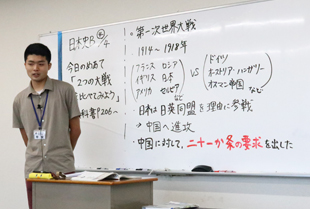 日本史B
今日のめあて
「2つの大戦
比べてみよう」
教科書P206〜
・第一次世界大戦
1914〜1918年
フランス ロシア
イギリス 日本
アメリカ セルビア
など
VS
ドイツ
オーストリア・ハンガリー
オスマン帝国
など
・日本は日英同盟を理由に参戦
→中国へ進攻
・中国に対して、二十一か条の要求を出した